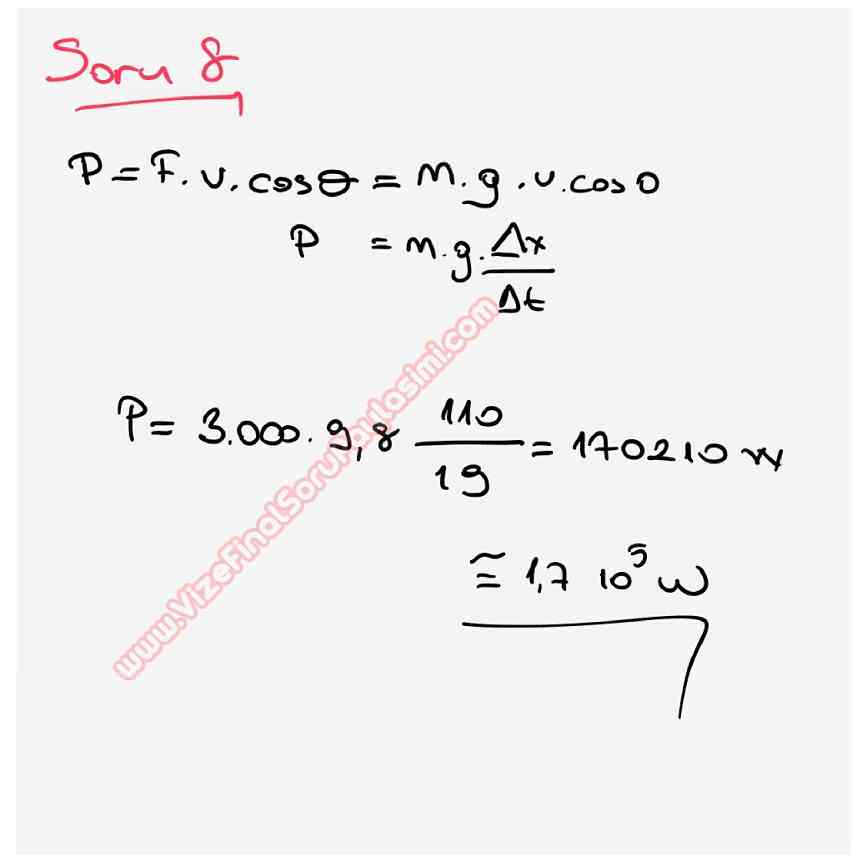 Soru 8
P = F. v. cosθ = m.g.v.cos0
P = m.g. Δx/Δt
P = 3.000. 9,8 110/19 = 170210 W
≅ 1,7 10⁵ W
www.VizeFinalSoruPaylasimi.com